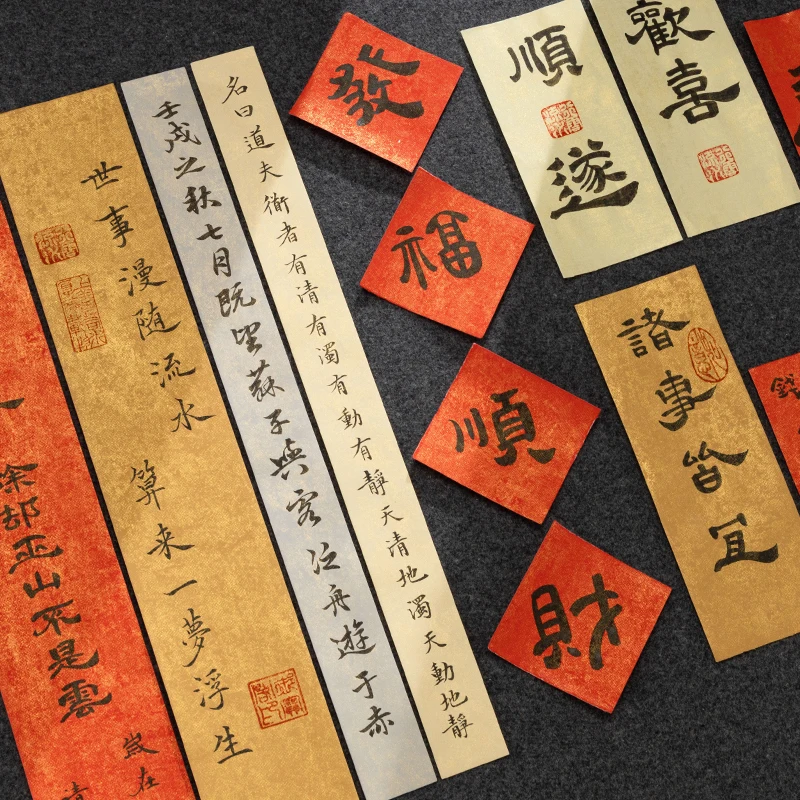 除郤巫山不是雲
歲在
世事漫随流水
算来一夢浮生
壬戌之秋七月既望蘇子與客泛舟遊于赤
名曰道夫衜者有清有濁有動有靜天清地濁天動地靜
發
福
順
財
順遂
歡喜
諸事皆宜
錢